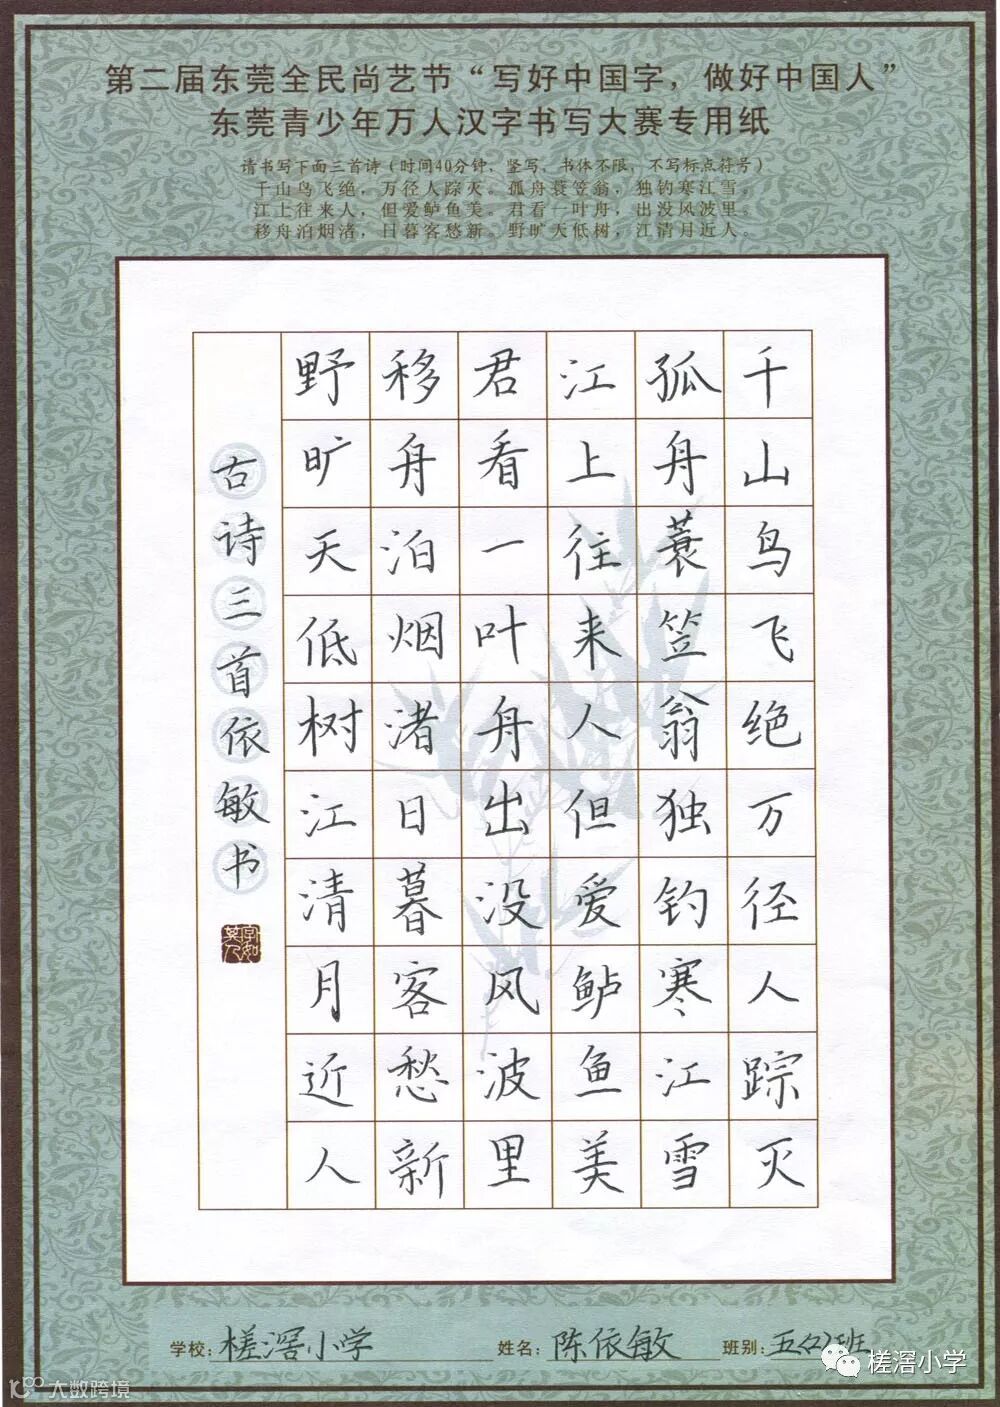 第二届东莞全民尚艺节“写好中国字，做好中国人”
东莞青少年万人汉字书写大赛专用纸
请书写下面三首诗（时间40分钟，竖写，书体不限，不写标点符号）
千山鸟飞绝，万径人踪灭。孤舟蓑笠翁，独钓寒江雪。
江上往来人，但爱鲈鱼美。君看一叶舟，出没风波里。
移舟泊烟渚，日暮客愁新。野旷天低树，江清月近人。
千山鸟飞绝万径人踪灭
孤舟蓑笠翁独钓寒江雪
江上往来人但爱鲈鱼美
君看一叶舟出没风波里
移舟泊烟渚日暮客愁新
野旷天低树江清月近人
古诗三首依敏书
学校：槎滘小学 姓名：陈依敏 班别：五(2)班
槎滘小学
大数跨境